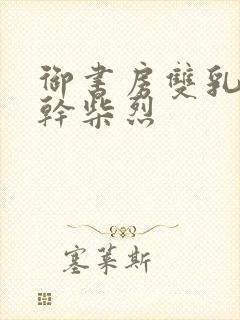 御書房雙乳
幹柴烈
塞萊斯